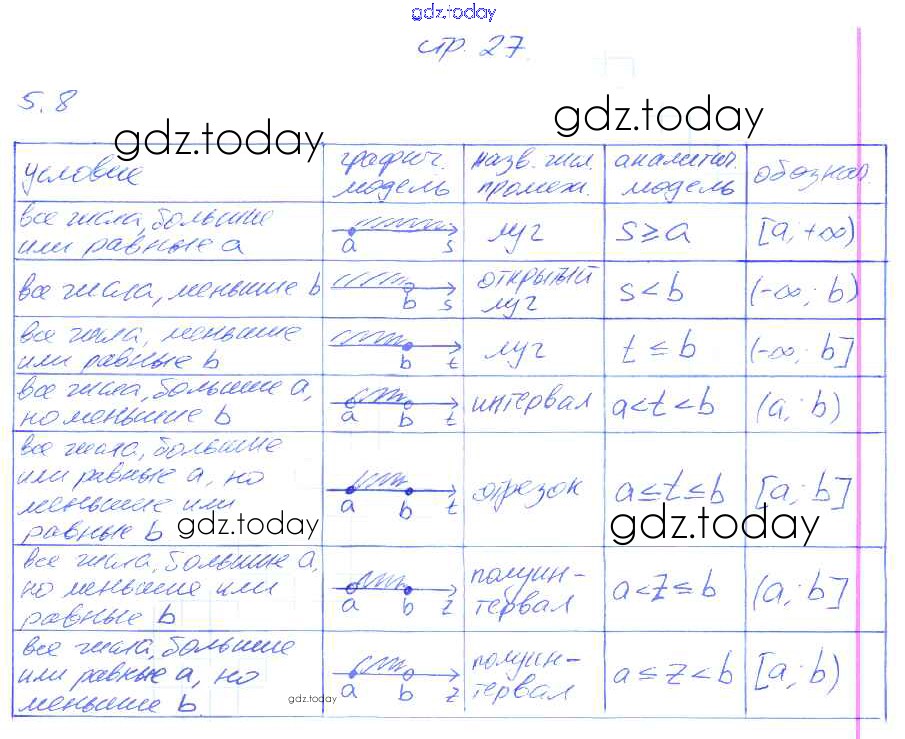 gdz.today
стр. 27
5.8
gdz.today gdz.today
условие графич. модель назв. чил. промеж. аналитич. модель обознач.
все числа, большие или равные a a s луч s ≥ a [a, +∞)
все числа, меньшие b b s открытый луч s < b (-∞; b)
все числа, меньшие или равные b b t луч t ≤ b (-∞; b]
все числа, большие a, но меньшие b a b t интервал a < t < b (a; b)
все числа, большие или равные a, но меньшие или равные b a b t отрезок a ≤ t ≤ b [a; b]
gdz.today gdz.today
все числа, большие a, но меньшие или равные b a b z полуин-тервал a < z ≤ b (a; b]
все числа, большие или равные a, но меньшие b a b z полуин-тервал a ≤ z < b [a; b)
gdz.today